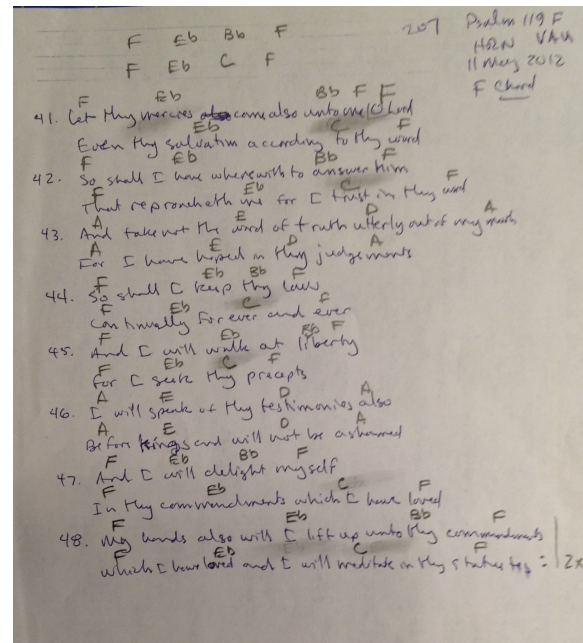 207 Psalm 119 F
HRN VAU
F Eb Bb F
11 May 2012
F Eb C F
F Chord
F Eb Bb F F
41. Let thy mercies come also unto me O Lord
Eb C F
Even thy salvation according to thy word
F Eb Bb F
42. So shall I have wherewith to answer him
F Eb C F
That reproacheth me for I trust in thy word
A E D A
43. And take not the word of truth utterly out of my mouth
A E D A
For I have hoped in thy judgements
F Eb Bb F
44. So shall I keep thy law
F Eb C F
Continually for ever and ever
F Eb Bb F
45. And I will walk at liberty
F Eb C F
For I seek thy precepts
A E D A
46. I will speak of thy testimonies also
A E D A
Before kings and will not be ashamed
F Eb Bb F
47. And I will delight myself
F Eb C F
In thy commandments which I have loved
F Eb Bb F
48. My hands also will I lift up unto thy commandments
F Eb C F
which I have loved and I will meditate in thy statutes : 2x